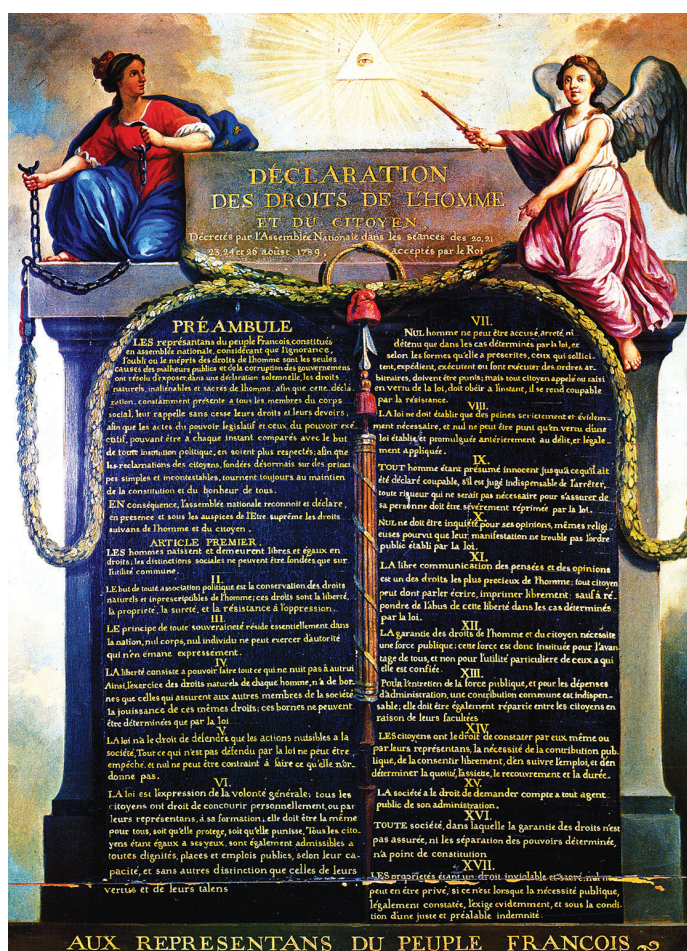 DÉCLARATION
DES DROITS DE L'HOMME
ET DU CITOYEN
Décretés par l'Assemblée Nationale dans les séances des 20, 21
23, 24 et 26 aoûst 1789, acceptés par le Roi
PRÉAMBULE
LES représentans du peuple Francois, constitués
en assemblée nationale, considérant que l'ignorance,
l'oubli ou le mépris des droits de l'homme sont les seules
causes des malheurs publics et de la corruption des gouvernemens
ont résolu d'exposer dans une déclaration solemnelle, les droits
naturels, inaliénables et sacrés de l'homme: afin que cette décla
ration, constamment présente a tous les membres du corps
social, leur rappelle sans cesse leurs droits et leurs devoirs;
afin que les actes du pouvoir legislatif et ceux du pouvoir exé
cutif, pouvant être a chaque instant comparés avec le but
de toute institution politique, en soient plus respectés; afin que
les reclamations des citoyens, fondées désormais sur des princi
pes simples et incontestables, tournent toujours au maintien
de la constitution et du bonheur de tous.
EN conséquence, l'assemblée nationale reconnoit et déclare,
en presence et sous les auspices de l'Etre suprême les droits
suivans de l'homme et du citoyen.
ARTICLE PREMIER.
LES hommes naissent et demeurent libres et égaux en
droits; les distinctions sociales ne peuvent être fondées que sur
l'utilité commune.
II.
LE but de toute association politique est la conservation des droits
naturels et inprescriptibles de l'homme; ces droits sont la liberté,
la propriété, la sureté, et la résistance à l'oppression.
III.
LE principe de toute souveraineté réside essentiellement dans
la nation, nul corps, nul individu ne peut exercer d'autorité
qui n'en émane expressément.
IV.
LA liberté consiste a pouvoir faire tout ce qui ne nuit pas à autrui
Ainsi, l'exercice des droits naturels de chaque homme, n'a de bor-
nes que celles qui assurent aux autres membres de la société
la jouissance de ces mêmes droits; ces bornes ne peuvent
être déterminées que par la loi
V.
LA loi n'a le droit de défendre que les actions nuisibles a la
société, Tout ce qui n'est pas défendu par la loi ne peut être
empêché, et nul ne peut être contraint à faire ce qu'elle n'or-
donne pas.
VI.
LA loi est l'expression de la volonté générale; tous les
citoyens ont droit de concourir personnellement, ou par
leurs représentans, à sa formation; elle doit être la même
pour tous, soit qu'elle protege, soit qu'elle punisse, Tous les cito-
yens étant égaux a ses yeux, sont également admissibles a
toutes dignités, places et emplois publics, selon leur ca-
pacité, et sans autres distinction que celles de leurs
vertus et de leurs talens
VII.
NUL homme ne peut être accusé, arreté, ni
détenu que dans les cas déterminés par la loi, et
selon les formes qu'elle a prescrites, ceux qui sollici-
tent, expédient, exécutent ou font exécuter des ordres ar-
bitraires, doivent être punis; mais tout citoyen appelé ou saisi
en vertu de la loi, doit obéir a l'instant, il se rend coupable
par la résistance.
VIII.
LA loi ne doit établir que des peines strictement et évidem-
ment nécessaire, et nul ne peut être puni qu'en vertu d'une
loi établie, et promulguée antérierement au délit, et légale-
ment appliquée.
IX.
TOUT homme étant présumé innocent jusqu'a ce qu'il ait
été déclaré coupable, s'il est jugé indispensable de l'arrêter,
toute rigueur qui ne serait pas nécessaire pour s'assurer de
sa personne doit être sévérement réprimée par la loi.
X.
NUL ne doit être inquiété pour ses opinions, mêmes religi-
euses pourvu que leur manifestation ne trouble pas l'ordre
public établi par la loi.
XI.
LA libre communication des pensées et des opinions
est un des droits les plus precieux de l'homme; tout citoyen
peut dont parler écrire, imprimer librement: sauf à ré-
pondre de l'abus de cette liberté dans les cas déterminés
par la loi.
XII.
LA garantie des droits de l'homme et du citoyen nécessite
une force publique; cette force est donc instituée pour l'avan
tage de tous, et non pour l'utilité particuliere de ceux a qui
elle est confiée.
XIII.
Pour l'entretien de la force publique, et pour les dépenses
d'administration, une contribution commune est indispen-
sable; elle doit être également répartie entre les citoyens en
raison de leurs facultées
XIV.
LES citoyens ont le droit de constater par eux même ou
par leurs représentans, la nécessité de la contribution pub-
lique, de la consentir librement, d'en suivre l'emploi, et d'en
déterminer la quotité, l'assiette, le recouvrement et la durée.
XV.
LA société a le droit de demander compte a tout agent
public de son administration.
XVI.
TOUTE société, dans laquelle la garantie des droits n'est
pas assurée, ni les séparation des pouvoirs déterminée,
n'a point de constitution
XVII.
LES proprietés étant un droit inviolable et sacré, nul ne
peut en être privé, si ce n'est lorsque la nécessité publique,
légalement constatée, l'exige evidemment, et sous la condi
tion d'une juste et préalable indemnité.
AUX REPRESENTANS DU PEUPLE FRANCOIS